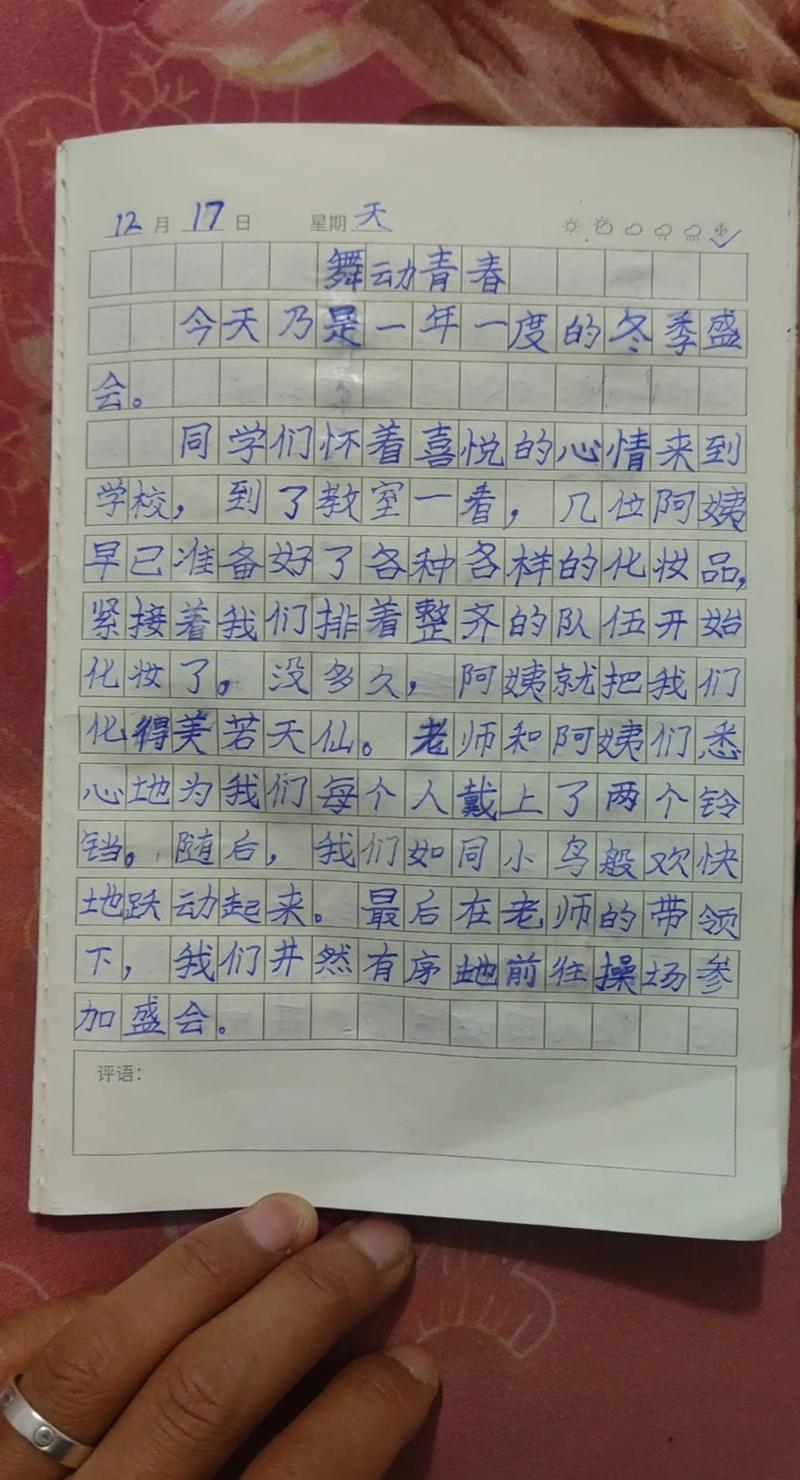 12月17日 星期天
舞动青春
今天乃是一年一度的冬季盛
会。
同学们怀着喜悦的心情来到
学校，到了教室一看，几位阿姨
早已准备好了各种各样的化妆品，
紧接着我们排着整齐的队伍开始
化妆了。没多久，阿姨就把我们
化得美若天仙。老师和阿姨们悉
心地为我们每个人戴上了两个铃
铛。随后，我们如同小鸟般欢快
地跃动起来。最后在老师的带领
下，我们井然有序地前往操场参
加盛会。
评语：